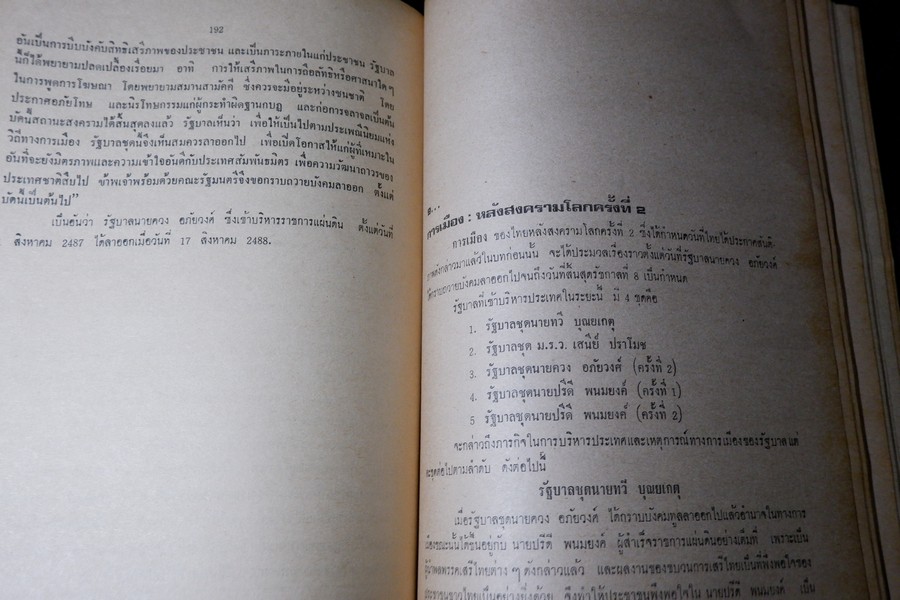 192
อันเป็นการบีบบังคับสิทธิเสรีภาพของประชาชน และเป็นภาระภายในแก่ประชาชน รัฐบาล
นี้ก็ได้พยายามปลดเปลื้องเรื่อยมา อาทิ การให้เสรีภาพในการถือลัทธิหรือศาสนาใด ๆ
ในการพูดการโฆษณา โดยพยายามสมานสามัคคี ซึ่งควรจะมีอยู่ระหว่างชนชาติ โดย
ประกาศอภัยโทษ และนิรโทษกรรมแก่ผู้กระทำผิดฐานกบฏ และก่อการจลาจลเป็นต้น
บัดนี้สถานะสงครามได้สิ้นสุดลงแล้ว รัฐบาลเห็นว่า เพื่อให้เป็นไปตามประเพณีนิยมแห่ง
วิถีทางการเมือง รัฐบาลชุดนี้จึงเห็นสมควรลาออกไป เพื่อเปิดโอกาสให้แก่ผู้ที่เหมาะใน
อันที่จะยังมิตรภาพและความเข้าใจอันดีกับประเทศสัมพันธมิตร เพื่อความวัฒนาถาวรของ
ประเทศชาติสืบไป ข้าพเจ้าพร้อมด้วยคณะรัฐมนตรีจึงขอกราบถวายบังคมลาออก ตั้งแต่
บัดนี้เป็นต้นไป"
เป็นอันว่า รัฐบาลนายควง อภัยวงศ์ ซึ่งเข้าบริหารราชการแผ่นดิน ตั้งแต่วันที่
สิงหาคม 2487 ได้ลาออกเมื่อวันที่ 17 สิงหาคม 2488.
การเมือง : หลังสงครามโลกครั้งที่ 2
การเมือง ของไทยหลังสงครามโลกครั้งที่ 2 ซึ่งได้กำหนดวันที่ไทยได้ประกาศสันติ
ภาพดังกล่าวมาแล้วในบทก่อนนั้น จะได้ประมวลเรื่องราวตั้งแต่วันที่รัฐบาลนายควง อภัยวงศ์
ได้กราบถวายบังคมลาออกไปจนถึงวันที่สิ้นสุดรัชกาลที่ 8 เป็นกำหนด
รัฐบาลที่เข้าบริหารประเทศในระยะนี้ มี 4 ชุดคือ
1. รัฐบาลชุดนายทวี บุณยเกตุ
2. รัฐบาลชุด ม.ร.ว. เสนีย์ ปราโมช
3. รัฐบาลชุดนายควง อภัยวงศ์ (ครั้งที่ 2)
4. รัฐบาลชุดนายปรีดี พนมยงค์ (ครั้งที่ 1)
5 รัฐบาลชุดนายปรีดี พนมยงค์ (ครั้งที่ 2)
จะกล่าวถึงภารกิจในการบริหารประเทศและเหตุการณ์ทางการเมืองของรัฐบาลแต่
ละชุดต่อไปตามลำดับ ดังต่อไปนี้
รัฐบาลชุดนายทวี บุณยเกตุ
เมื่อรัฐบาลชุดนายควง อภัยวงศ์ ได้กราบบังคมทูลลาออกไปแล้วอำนาจในทางการ
เมืองขณะนั้นได้ขึ้นอยู่กับ นายปรีดี พนมยงค์ ผู้สำเร็จราชการแผ่นดินอย่างเต็มที่ เพราะเป็น
ผู้นำพลพรรคเสรีไทยต่าง ๆ ดังกล่าวแล้ว และผลงานของขบวนการเสรีไทยเป็นที่พึงพอใจของ
ประชาชนชาวไทยเป็นอย่างยิ่งด้วย จึงทำให้ประชาชนพึงพอใจใน นายปรีดี พนมยงค์ เป็น